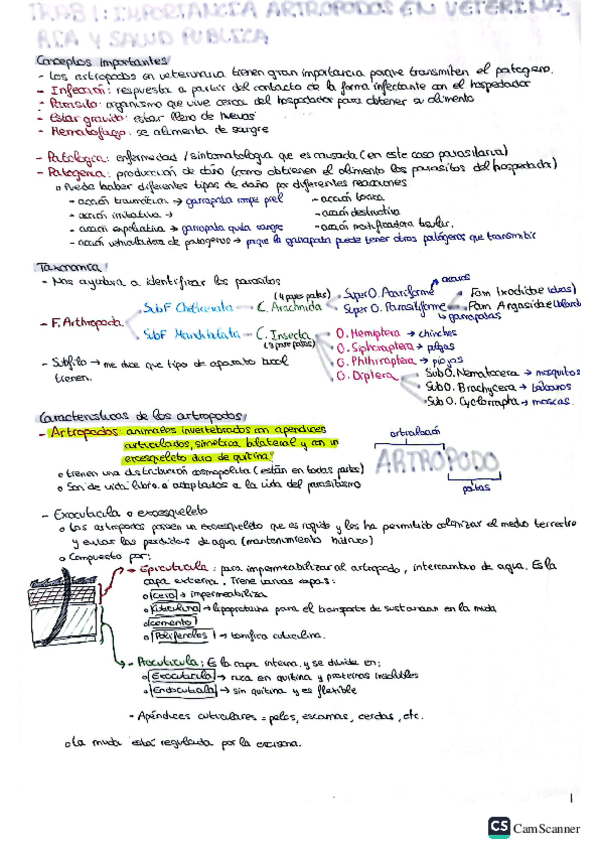 TRAB 1: IMPORTANCIA ARTROPODOS EN VETERINA_
RIA Y SALUD PUBLICA
Conceptos importantes
- Los artropodos en veterinaria tienen gran importancia porque transmiten el patogeno.
- Infeccion: respuesta a partir del contacto de la forma infectante con el hospedador
- Parasito: organismo que vive cerca del hospedador para obtener su alimento
- Estar gravido: estar lleno de huevos
- Hematofago: se alimenta de sangre
- Patologia: enfermedad / sintomatologia que es causada (en este caso parasitaria)
- Patogenia: produccion de daño (como obtienen el alimento los parasitos del hospedador)
o Puede haber diferentes tipos de daño por diferentes reacciones
- accion traumatica → garrapata rompe piel - accion toxica
- accion irritativa → - accion destructiva
- accion expoliativa → garrapata quita sangre - accion modificadora tisular.
- accion vehiculadora de patogenos → porque la garrapata puede tener otros patógenos que transmitir
Taxonomia:
- Nos ayudara a identificar los parasitos
acaros
(4 pares patas) Super O. Acariforme Fam Ixodidae
SubF Chelicerata C. Arachnida Super O. Parasitiforme Fam Argasidae
garrapatas
- F. Arthropoda
SubF Mandibulata C. Insecta O. Hemiptera → chinches
(3 pares patas) O. Siphonaptera → pulgas
- Subfilo → me dice que tipo de aparato bucal O. Phthiraptera → piojos
tienen. O. Diptera SubO. Nematocera → mosquitos
SubO. Brachycera → tabanos
SubO. Cyclorrapha → moscas.
Caracteristicas de los artropodos
- Artropodos: animales invertebrados con apendices
articulados, simetria bilateral y con un
exoesqueleto duro de quitina
articulación
ARTROPODO
patas
o tienen una distribución cosmopolita (están en todas partes)
o Son de vida libre o adaptados a la vida del parasitismo
- Exocuticula o exoesqueleto
o Los artropodos poseen un exoesqueleto que es rigido y les ha permitido colonizar el medio terrestre
y evitar las perdidas de agua (mantenimiento hidrico)
o Compuesto por:
→ Epicuticula: para impermeabilizar al artropodo, intercambio de agua. Es la
capa externa. Tiene varias capas:
o Cera → impermeabiliza
o Cuticulina → lipoproteina para el transporte de sustancias en la muda
o Cemento
o Polifenoles → tanifica cuticulina.
→ Procuticula: Es la capa interna y se divide en:
o Exocuticula → rica en quitina y proteinas insolubles
o Endocuticula → sin quitina y es flexible
- Apéndices cuticulares = pelos, escamas, cerdas, etc.
o La muda está regulada por la ecdisona.
1
CS CamScanner